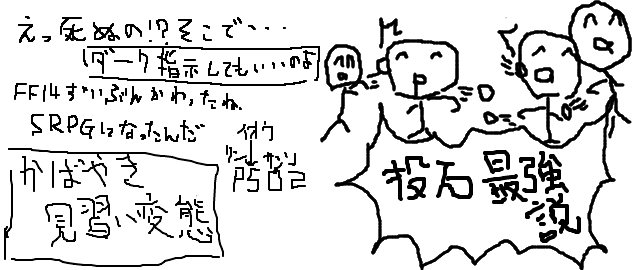 えっ死ぬの!?そこで・・・
ダーク指示してもいいのよ
FF14ずいぶんかわったね
SRPGになったんだ
かばやき
見習い変態
投石最強
説